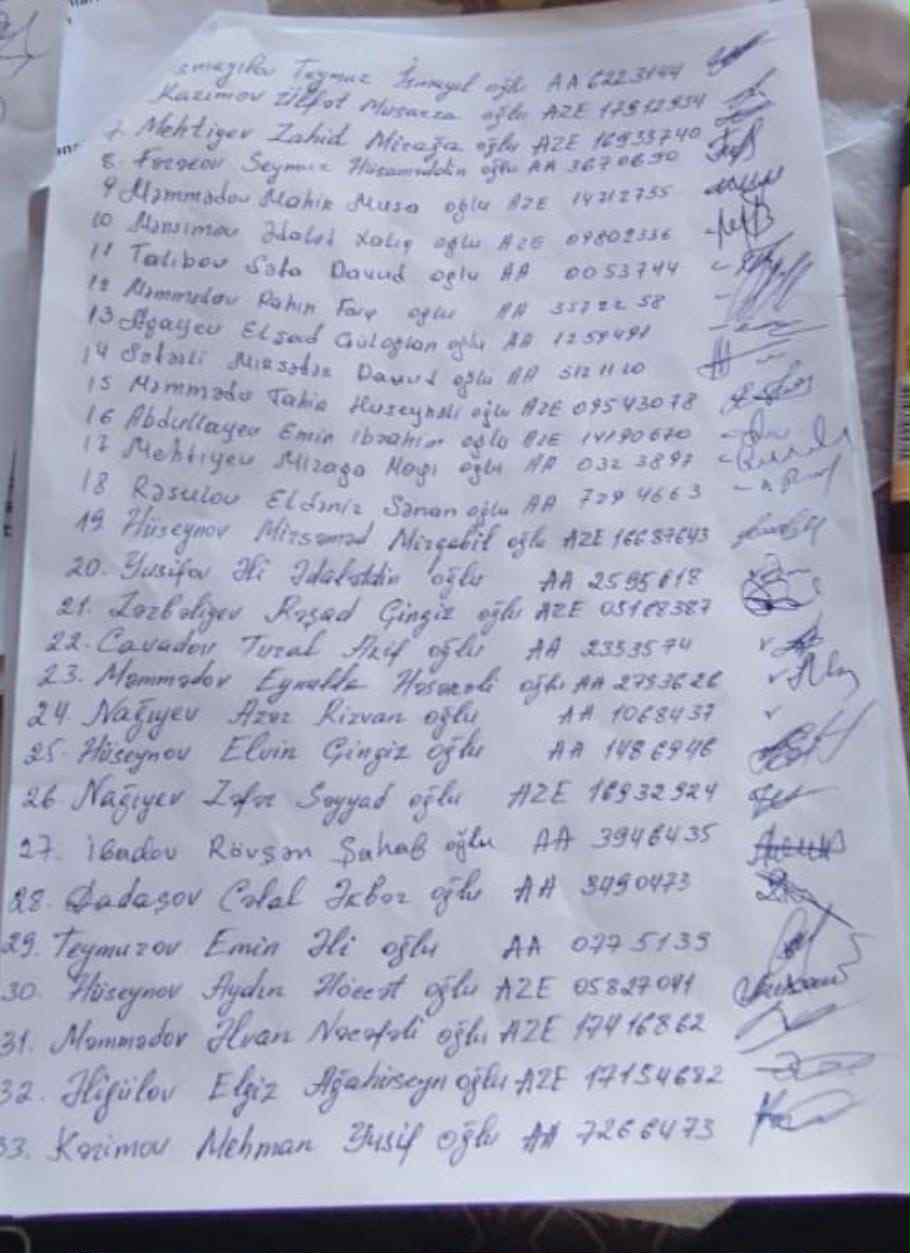 Teymur İsmayıl oğlu AA 6223144
Kazımov Ülfət Musarza oğlu AZE 17912934
7 Mehtiyev Zahid Mirağa oğlu AZE 16933740
8. Seymur Hüsaməddin oğlu AA 3670690
9 Məmmədov Mahir Musa oğlu AZE 14212755
10 Mənsimov Ədalət Xalıq oğlu AZE 09802336
11 Talıbov Səfa Davud oğlu AA 0053744
12 Məmmədov Rahin oğlu AA 3572258
13 Ağayev Elşad Güloğlan oğlu AA 1259491
14 Davud oğlu AA 5121120
15 Məmmədov Tahir Hüseynəli oğlu AZE 09543078
16 Abdullayev Emin İbrahim oğlu AZE 14190670
17 Mehtiyev Mirağa oğlu AA 0323897
18 Rəsulov Eldəniz Sənan oğlu AA 7294663
19. Hüseynov Mirsəməd Mirqabil oğlu AZE 16687643
20. Yusifov Əli Ədaləddin oğlu AA 2595618
21. Rəşad Çingiz oğlu AZE 05168387
22. Cavadov Tural Akif oğlu AA 2353574
23. Məmmədov Eynulla Həsənəli oğlu AA 2793626
24. Nağıyev Azər Rizvan oğlu AA 1068437
25. Hüseynov Elvin Çingiz oğlu AA 1486946
26 Nağıyev Zəfər Səyyad oğlu AZE 16932924
27. İbadov Rövşən Şahab oğlu AA 3946435
28. Dadaşov Cəlal Əkbər oğlu AA 3490473
29. Teymurov Emin Əli oğlu AA 0775135
30. Hüseynov Aydın Höccət oğlu AZE 05827041
31. Məmmədov Əlvan Nəcəfəli oğlu AZE 17416862
32. Əliqulov Elgiz Ağahüseyn oğlu AZE 17154682
33. Kazımov Mehman Yusif oğlu AA 7266473